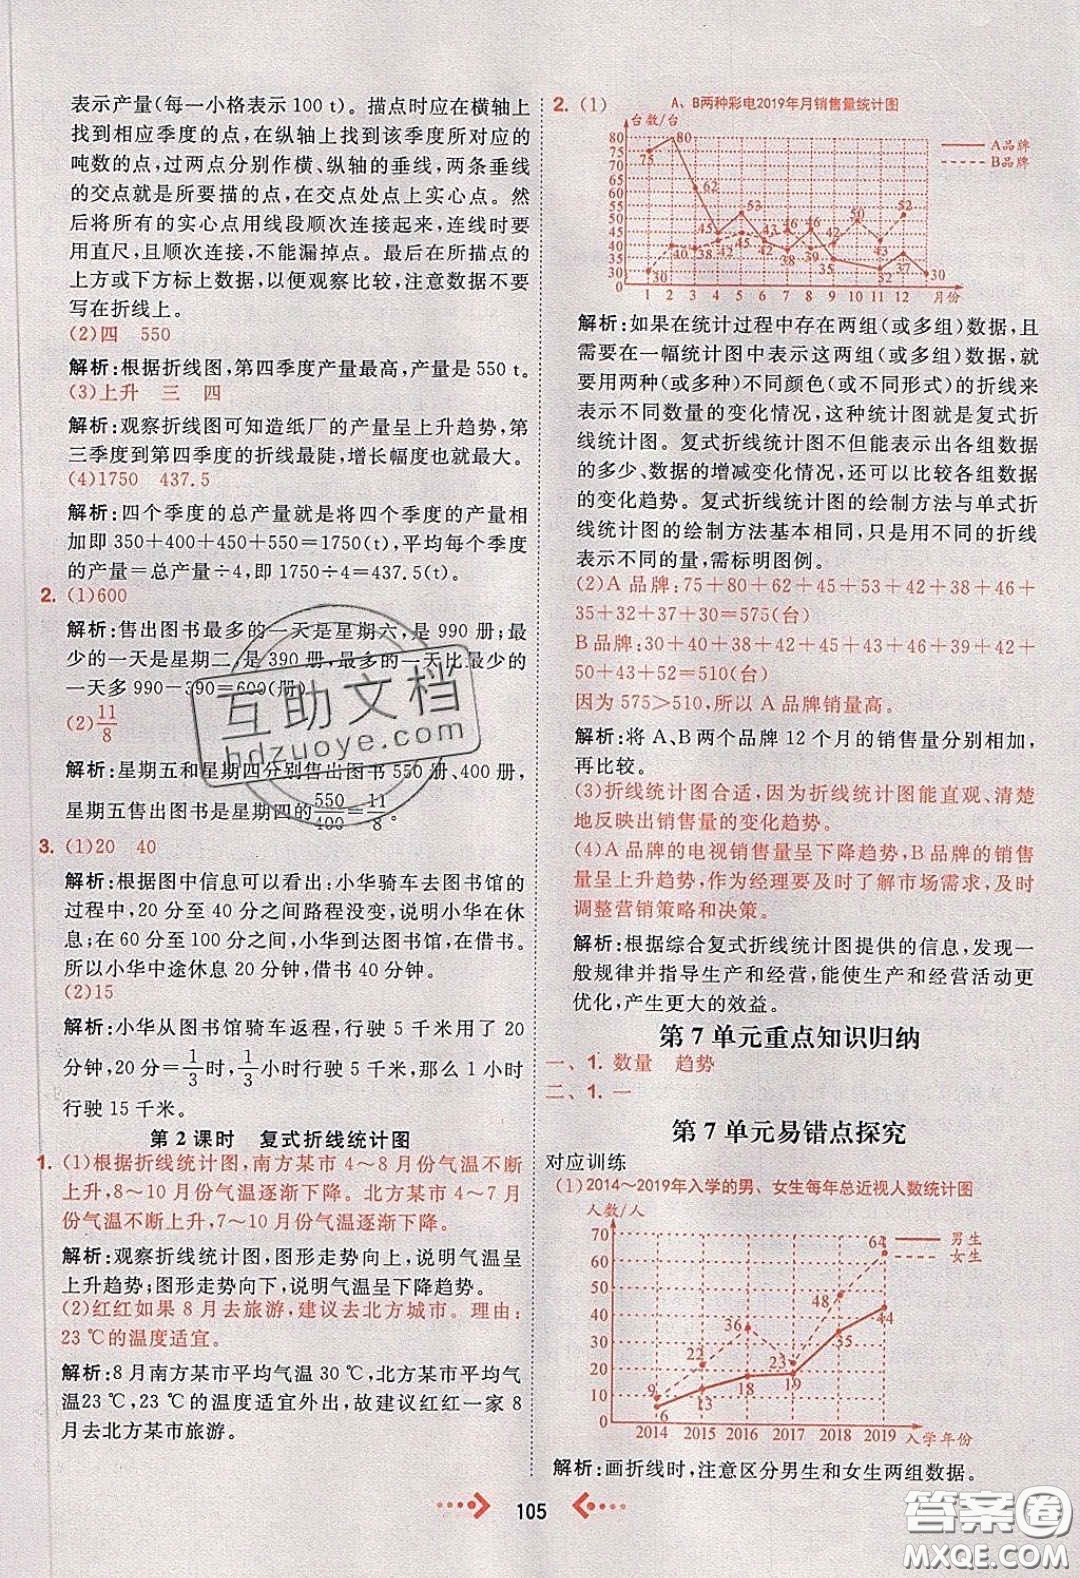 表示产量(每一小格表示100 t)。描点时应在横轴上
找到相应季度的点,在纵轴上找到该季度所对应的
吨数的点,过两点分别作横、纵轴的垂线,两条垂线
的交点就是所要描的点,在交点处点上实心点。然
后将所有的实心点用线段顺次连接起来,连线时要
用直尺,且顺次连接,不能漏掉点。最后在所描点的
上方或下方标上数据,以便观察比较,注意数据不要
写在折线上。
(2)四 550
解析:根据折线图,第四季度产量最高,产量是550 t。
(3)上升 三 四
解析:观察折线图可知造纸厂的产量呈上升趋势,第
三季度到第四季度的折线最陡,增长幅度也就最大。
(4)1750 437.5
解析:四个季度的总产量就是将四个季度的产量相
加即350+400+450+550=1750(t),平均每个季度
的产量=总产量÷4,即1750÷4=437.5(t)。
2. (1)600
解析:售出图书最多的一天是星期六,是990册;最
少的一天是星期二,是390册,最多的一天比最少的
一天多990-390=600(册)
(2)11/8
解析:星期五和星期四分别售出图书550册、400册,
星期五售出图书是星期四的550/400=11/8。
3. (1)20 40
解析:根据图中信息可以看出:小华骑车去图书馆的
过程中,20分至40分之间路程没变,说明小华在休
息;在60分至100分之间,小华到达图书馆,在借书。
所以小华中途休息20分钟,借书40分钟。
(2)15
解析:小华从图书馆骑车返程,行驶5千米用了20
分钟,20分=1/3时,1/3时行驶5千米,那么1小时
行驶15千米。
第2课时 复式折线统计图
1. (1)根据折线统计图,南方某市4~8月份气温不断
上升,8~10月份气温逐渐下降。北方某市4~7月
份气温不断上升,7~10月份气温逐渐下降。
解析:观察折线统计图,图形走势向上,说明气温呈
上升趋势;图形走势向下,说明气温呈下降趋势。
(2)红红如果8月去旅游,建议去北方城市。理由:
23 ℃的温度适宜。
解析:8月南方某市平均气温30 ℃,北方某市平均气
温23 ℃,23 ℃的温度适宜外出,故建议红红一家8
月去北方某市旅游。
2. (1) A、B两种彩电2019年月销售量统计图
台数/台
80 75 70 65 60 55 50 45 40 35 30 25 20 15 10 5 0
75 80 62 45 53 42 38 46 35 32 37 30
30 40 38 42 45 43 46 39 42 50 43 52
A品牌
B品牌
1 2 3 4 5 6 7 8 9 10 11 12 月份
解析:如果在统计过程中存在两组(或多组)数据,且
需要在一幅统计图中表示这两组(或多组)数据,就
要用两种(或多种)不同颜色(或不同形式)的折线来
表示不同数量的变化情况,这种统计图就是复式折
线统计图。复式折线统计图不但能表示出各组数据
的多少、数据的增减变化情况,还可以比较各组数据
的变化趋势。复式折线统计图的绘制方法与单式折
线统计图的绘制方法基本相同,只是用不同的折线
表示不同的量,需标明图例。
(2)A品牌:75+80+62+45+53+42+38+46+
35+32+37+30=575(台)
B品牌:30+40+38+42+45+43+46+39+42+
50+43+52=510(台)
因为575>510,所以A品牌销量高。
解析:将A、B两个品牌12个月的销售量分别相加,
再比较。
(3)折线统计图合适,因为折线统计图能直观、清楚
地反映出销售量的变化趋势。
(4)A品牌的电视销售量呈下降趋势,B品牌的电视
销量呈上升趋势,作为经理要及时了解市场需求,及时
调整营销策略和决策。
解析:根据综合复式折线统计图提供的信息,发现一
般规律并指导生产和经营,能使生产和经营活动更
优化,产生更大的效益。
第7单元重点知识归纳
一、1. 数量 趋势
二、1. 一
第7单元易错点探究
对应训练
(1)2014~2019年入学的男、女生每年总近视人数统计图
人数/人
70 60 50 40 30 20 10 0
9 22 36 23 48 64
6 13 18 19 35 44
男生
女生
2014 2015 2016 2017 2018 2019 入学年份
解析:画折线时,注意区分男生和女生两组数据。
105
互助文档
hdzuoye.com
答案圈
MXQE.COM